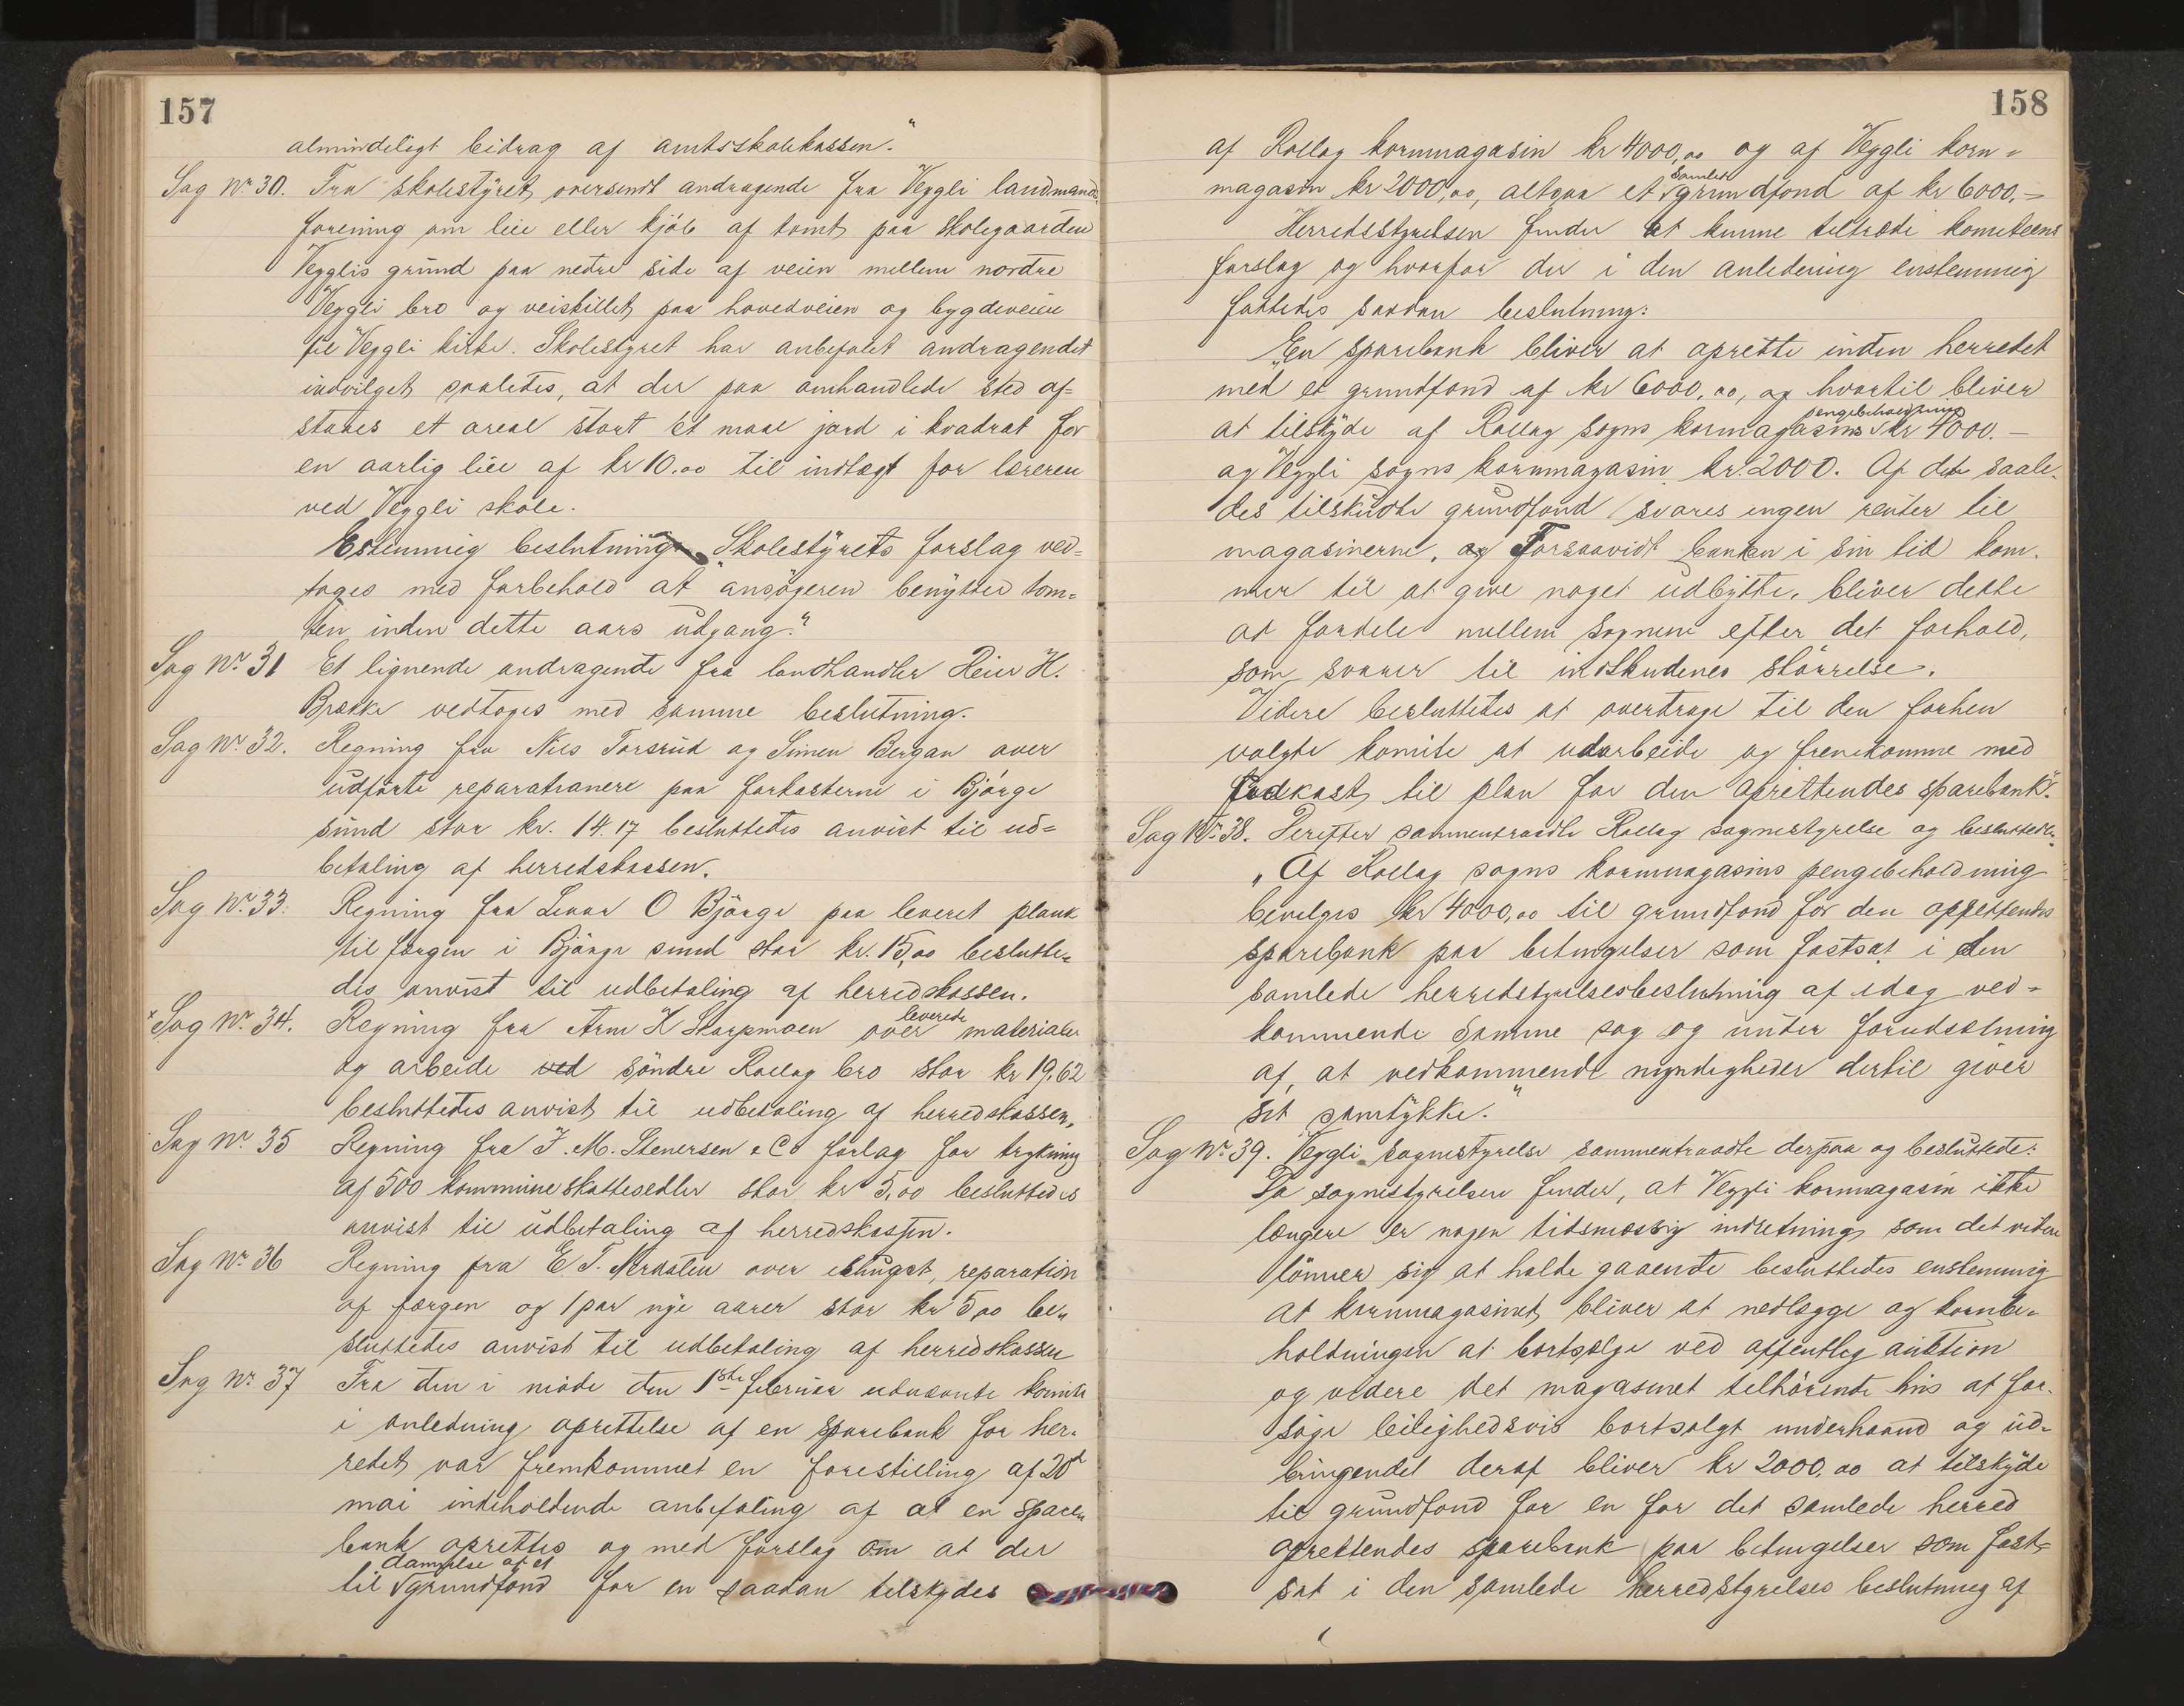 157
almindeligt bidrag af amtsskolekassen."
Sag Nr 30. Fra skolestyret oversendt andragende fra Veggli landmands
forening om leie eller kjöb af tomt paa skolegaarden
Vegglis grund paa nedre side af veien mellem nordre
Veggli bro og veiskillet paa hovedveien og bygdeveien
til Veggli kirke. Skolestyret har anbefalet andragendet
indvilget saaledes, at der paa omhandlede sted af=
staaes et areal stort et maal jord i kvadrat for
en aarlig leie af kr 10.00 til indtægt for læreren
ved Veggli skole.
Estemmig beslutning: "Skolestyrets forslag ved=
toges med forbehold at ansögeren benytter tom=
ten inden dette aars udgang."
Sag Nr. 31 Et lignende andragende fra landhandler Reier H.
Brække vedtoges med samme beslutning.
Sag Nr. 32. Regning fra Nils Torsrud og Simen Bergan over
udförte reparationer paa farkosterne i Björge
sund stor kr. 14.17 besluttedes anvist til ud=
betaling af herredskassen.
Sag Nr. 33. Regning fra Levor O Björge paa leveret plank
til færgen i Björge sund stor kr. 15,00 beslutte=
des anvist til udbetaling af herredskassen.
Sag Nr. 34. Regning fra Arne K Skarpmoen over leverede materialer
og arbeide ved söndre Rollag bro stor kr 19,62
besluttedes anvist til udbetaling af herredskassen.
Sag Nr 35 Regning fra J. M. Stenersen & Co forlag for trykning
af 500 kommuneskattesedler stor kr 5,00 besluttedes
anvist til udbetaling af herredskassen.
Sag Nr 36 Regning fra E. T. Nerdalen over reparation
af færgen og 1 par nye aarer stor kr 5,00 be=
sluttedes anvist til udbetaling af herredskassen
Sag Nr. 37 Fra den i möde den 1ste februar komite
i anledning oprettelse af en sparebank for her=
redet var fremkommet en forestilling af 20d
mai indeholdende anbefaling af at en spare=
bank oprettes og med forslag om at der
til dannelse af et grundfond for en saadan tilskydes
158
af Rollag kornmagasin kr 4000,00 og af Veggli korn=
magasin kr 2000,00, altsaa et samlet grundfond af kr 6000.=
Herredsstyrelsen finder at kunne tiltræde komiteens
forslag og hvorfor der i den anledning enstemmig
fattedes saadan beslutning:
"En sparebank bliver at oprette inden herredet
med et grundfond af kr 6000,00, og hvortil bliver
at tilskyde af Rollag sogns kornmagasins pengebeholdning kr 4000.-
og Veggli sogns kornmagasin kr. 2000. Af det saale=
des tilskudte grundfond svares ingen renter til
magasinerne. og Forsaavidt banken i sin tid kom=
mer til at give noget udbytte, bliver dette
at fordele mellem sognene efter det forhold,
som svarer til indskudenes störrelse.
Videre besluttedes at overdrage til den forhen
valgte komite at udarbeide og fremkomme med
udkast til plan for den oprettendes sparebank."
Sag Nr. 38. Derefter sammentraadte Rollag sognestyrelse og besluttede:
"Af Rollag sogns kornmagasins pengebeholdning
bevilges kr 4000,00 til grundfond for den oprettendes
sparebank paa betingelser som fastsat i den
samlede herredstyrelsesbeslutning af idag ved=
kommende samme sag og under forudsætning
af, at vedkommende myndigheder dertil giver
sit samtykke."
Sag Nr. 39. Veggli sognestyrelse sammentraadte derpaa og besluttede:
Da sognestyrelsen finder, at Veggli kornmagasin ikke
længere er nogen tidsmæssig indretning som det videre
lönner sig at holde gaaende besluttedes enstemmig
at kornmagasinet bliver at nedlægge og kornbe=
holdningen at bortsælge ved offentlig auktion
og videre det magasinet tilhörende hus at for=
söge leilighedsvis bortsolgt underhaand og ud=
bringendet deraf bliver kr 2000.00 at tilskyde
til grundfond for en for det samlede herred
oprettendes sparebank paa betingelser som fast=
sat i den samlede herredstyrelses beslutning af